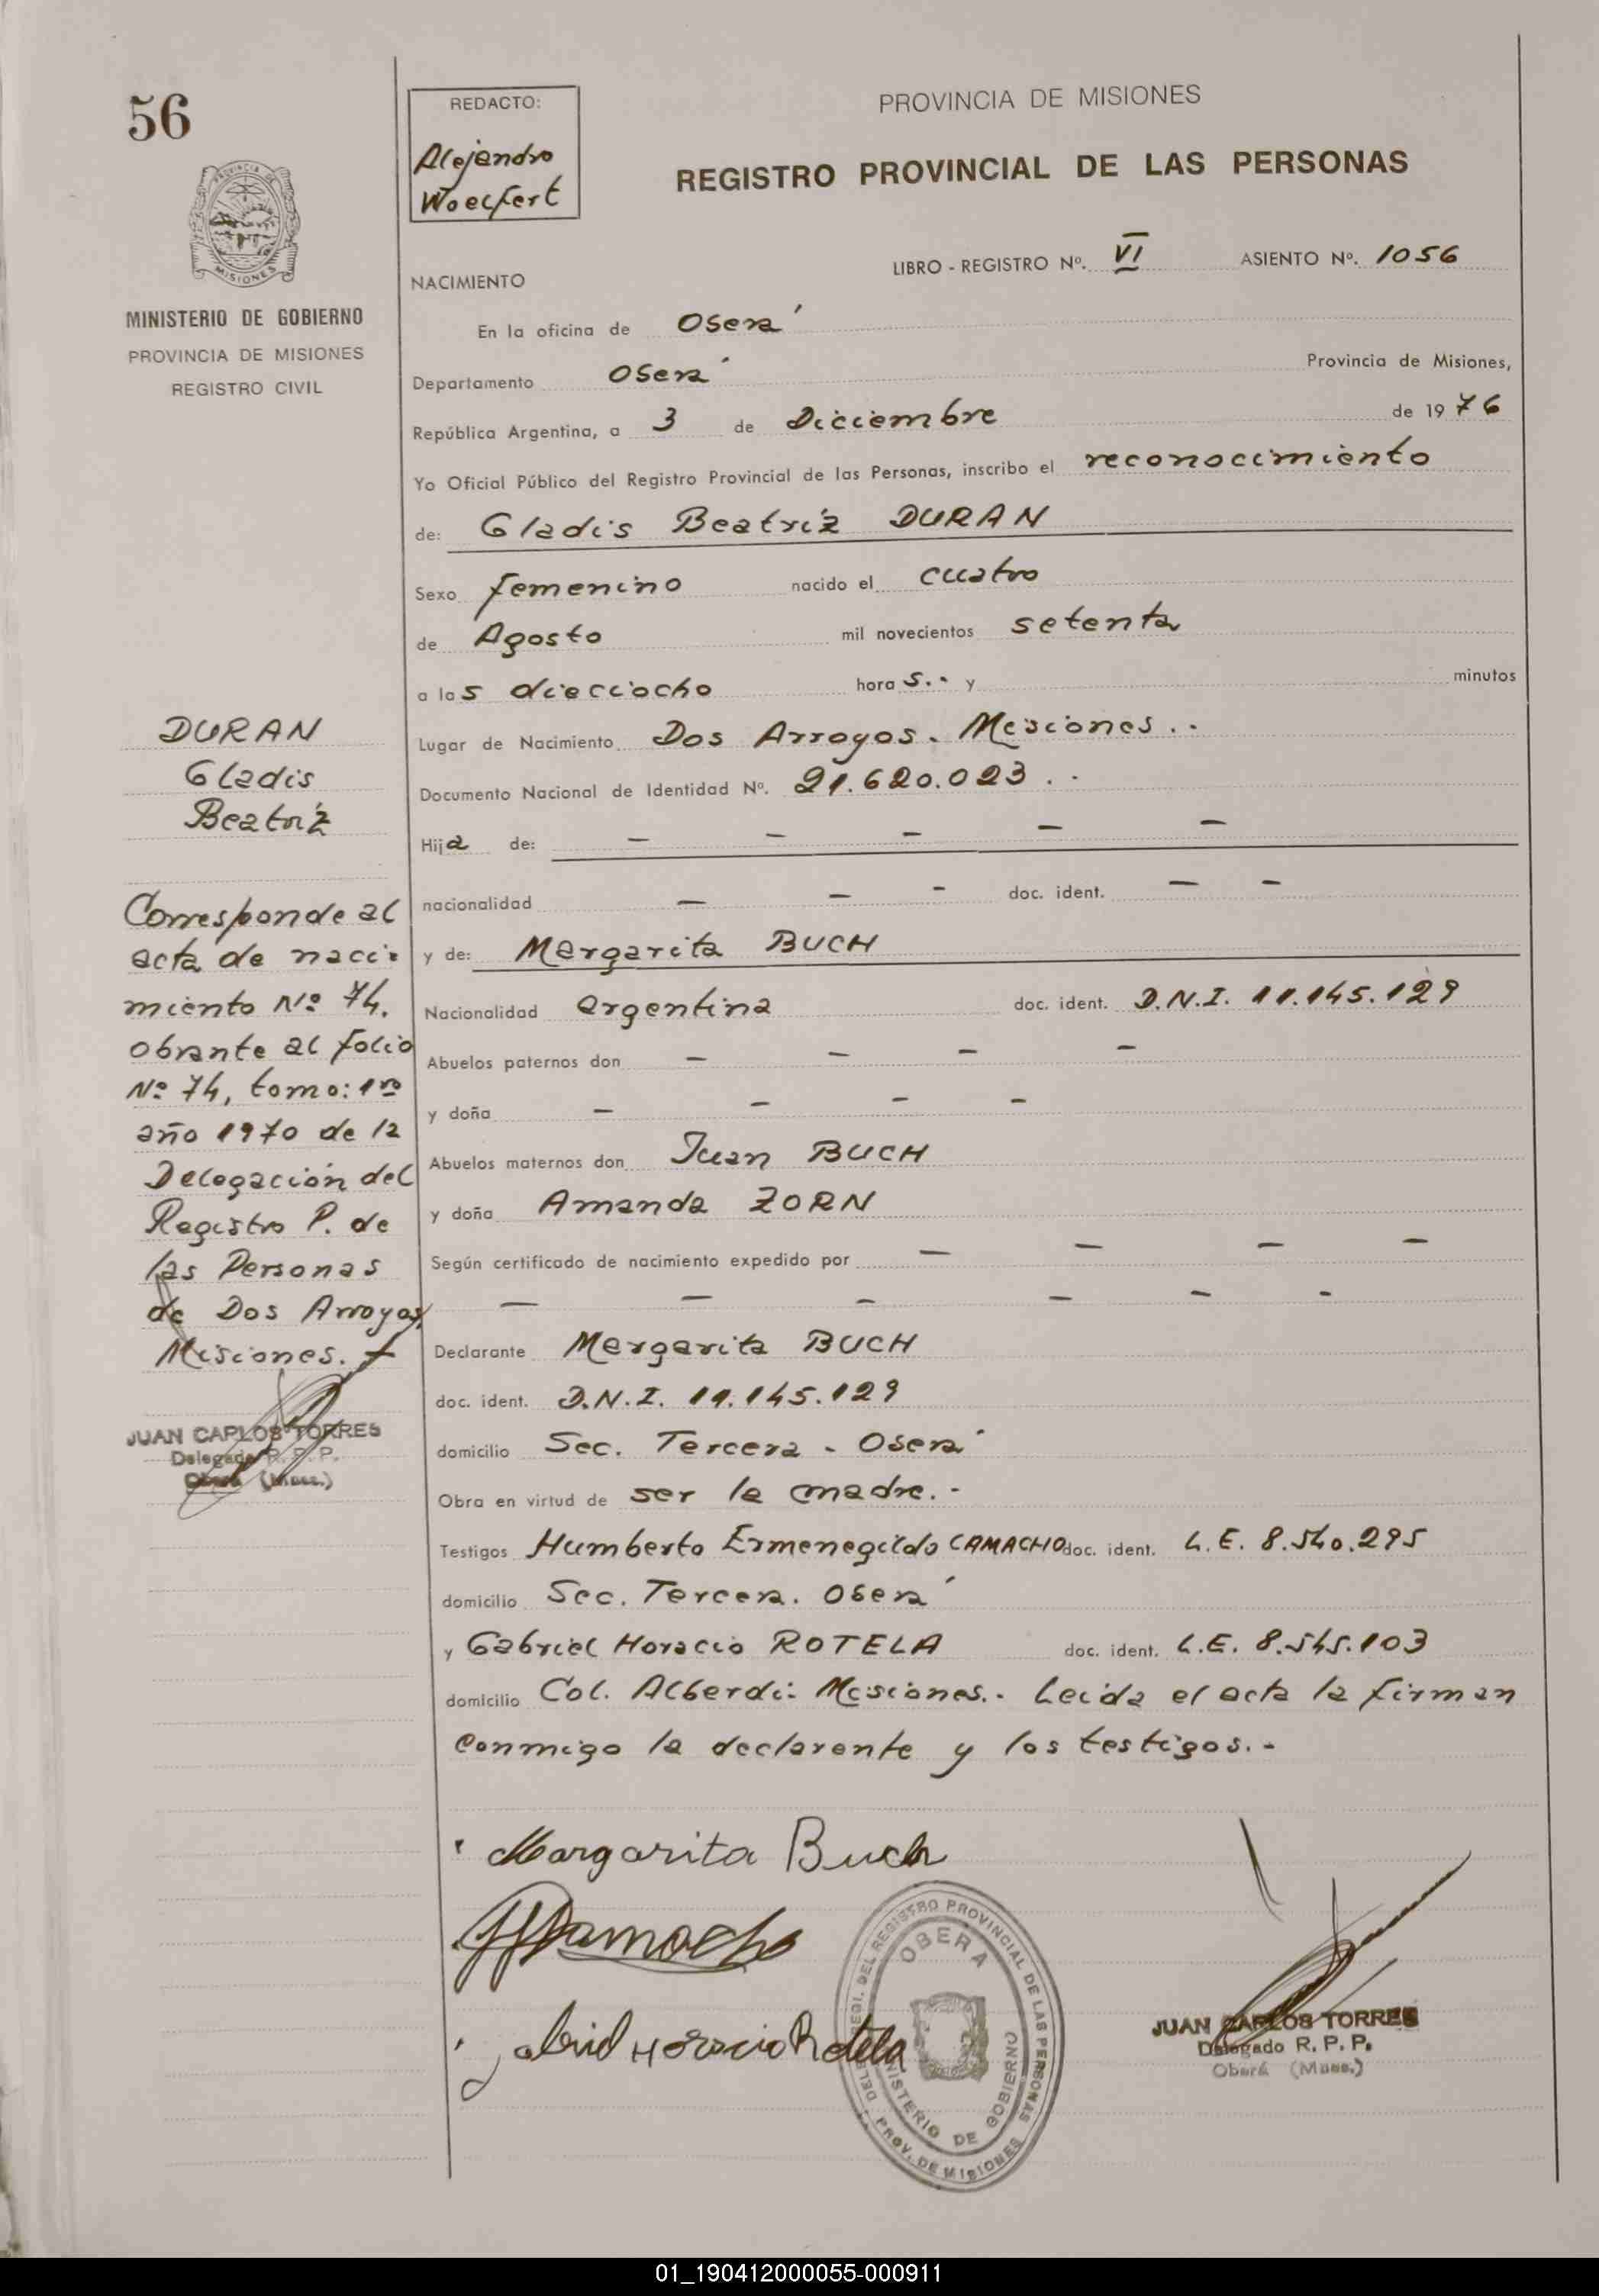 56
REDACTO:
Alejandro
Woelfert
PROVINCIA DE MISIONES
REGISTRO PROVINCIAL DE LAS PERSONAS
PROVINCIA DE
MISIONES
MINISTERIO DE GOBIERNO
PROVINCIA DE MISIONES
REGISTRO CIVIL
LIBRO - REGISTRO Nº. VI ASIENTO Nº. 1056
NACIMIENTO
En la oficina de Oberá
Departamento Oberá Provincia de Misiones,
República Argentina, a 3 de Diciembre de 1976
Yo Oficial Público del Registro Provincial de las Personas, inscribo el reconocimiento
de: Gladis Beatríz DURAN
Sexo femenino nacido el cuatro
de Agosto mil novecientos setenta
a las dieciocho horas.- y minutos
Lugar de Nacimiento Dos Arroyos. Misiones.-
Documento Nacional de Identidad Nº. 21.620.023.-
Hija de: — — — — —
nacionalidad — — - doc. ident. — —
y de: Margarita BUCH
Nacionalidad argentina doc. ident. D.N.I. 11.145.129
Abuelos paternos don — — — —
y doña — — — —
Abuelos maternos don Juan BUCH
y doña Amanda ZORN
Según certificado de nacimiento expedido por — — — —
— — — — — -
Declarante Margarita BUCH
doc. ident. D.N.I. 11.145.129
domicilio Sec. Tercera - Oberá
Obra en virtud de ser la madre.-
Testigos Humberto Ermenegildo CAMACHO doc. ident. L.E. 8.540.295
domicilio Sec. Tercera. Oberá
y Gabriel Horacio ROTELA doc. ident. L.E. 8.545.103
domicilio Col. Alberdi- Misiones.- Leida el acta la firman
conmigo la declarante y los testigos.-
DURAN
Gladis
Beatríz
Corresponde al
acta de naci-
miento Nº 74,
obrante al folio
Nº 74, tomo: 1ro
año 1970 de la
Delegación del
Registro P. de
las Personas
de Dos Arroyos,
Misiones.
JUAN CARLOS TORRES
Delegado R. P. P.
Oberá (Mnes.)
Margarita Buch
HCamacho
Gabriel Horacio Rotela
DEL REGISTRO PROVINCIAL DE LAS PERSONAS
OBERA
MINISTERIO DE GOBIERNO
PROV. DE MISIONES
JUAN CARLOS TORRES
Delegado R. P. P.
Oberá (Mnes.)
01_190412000055-000911